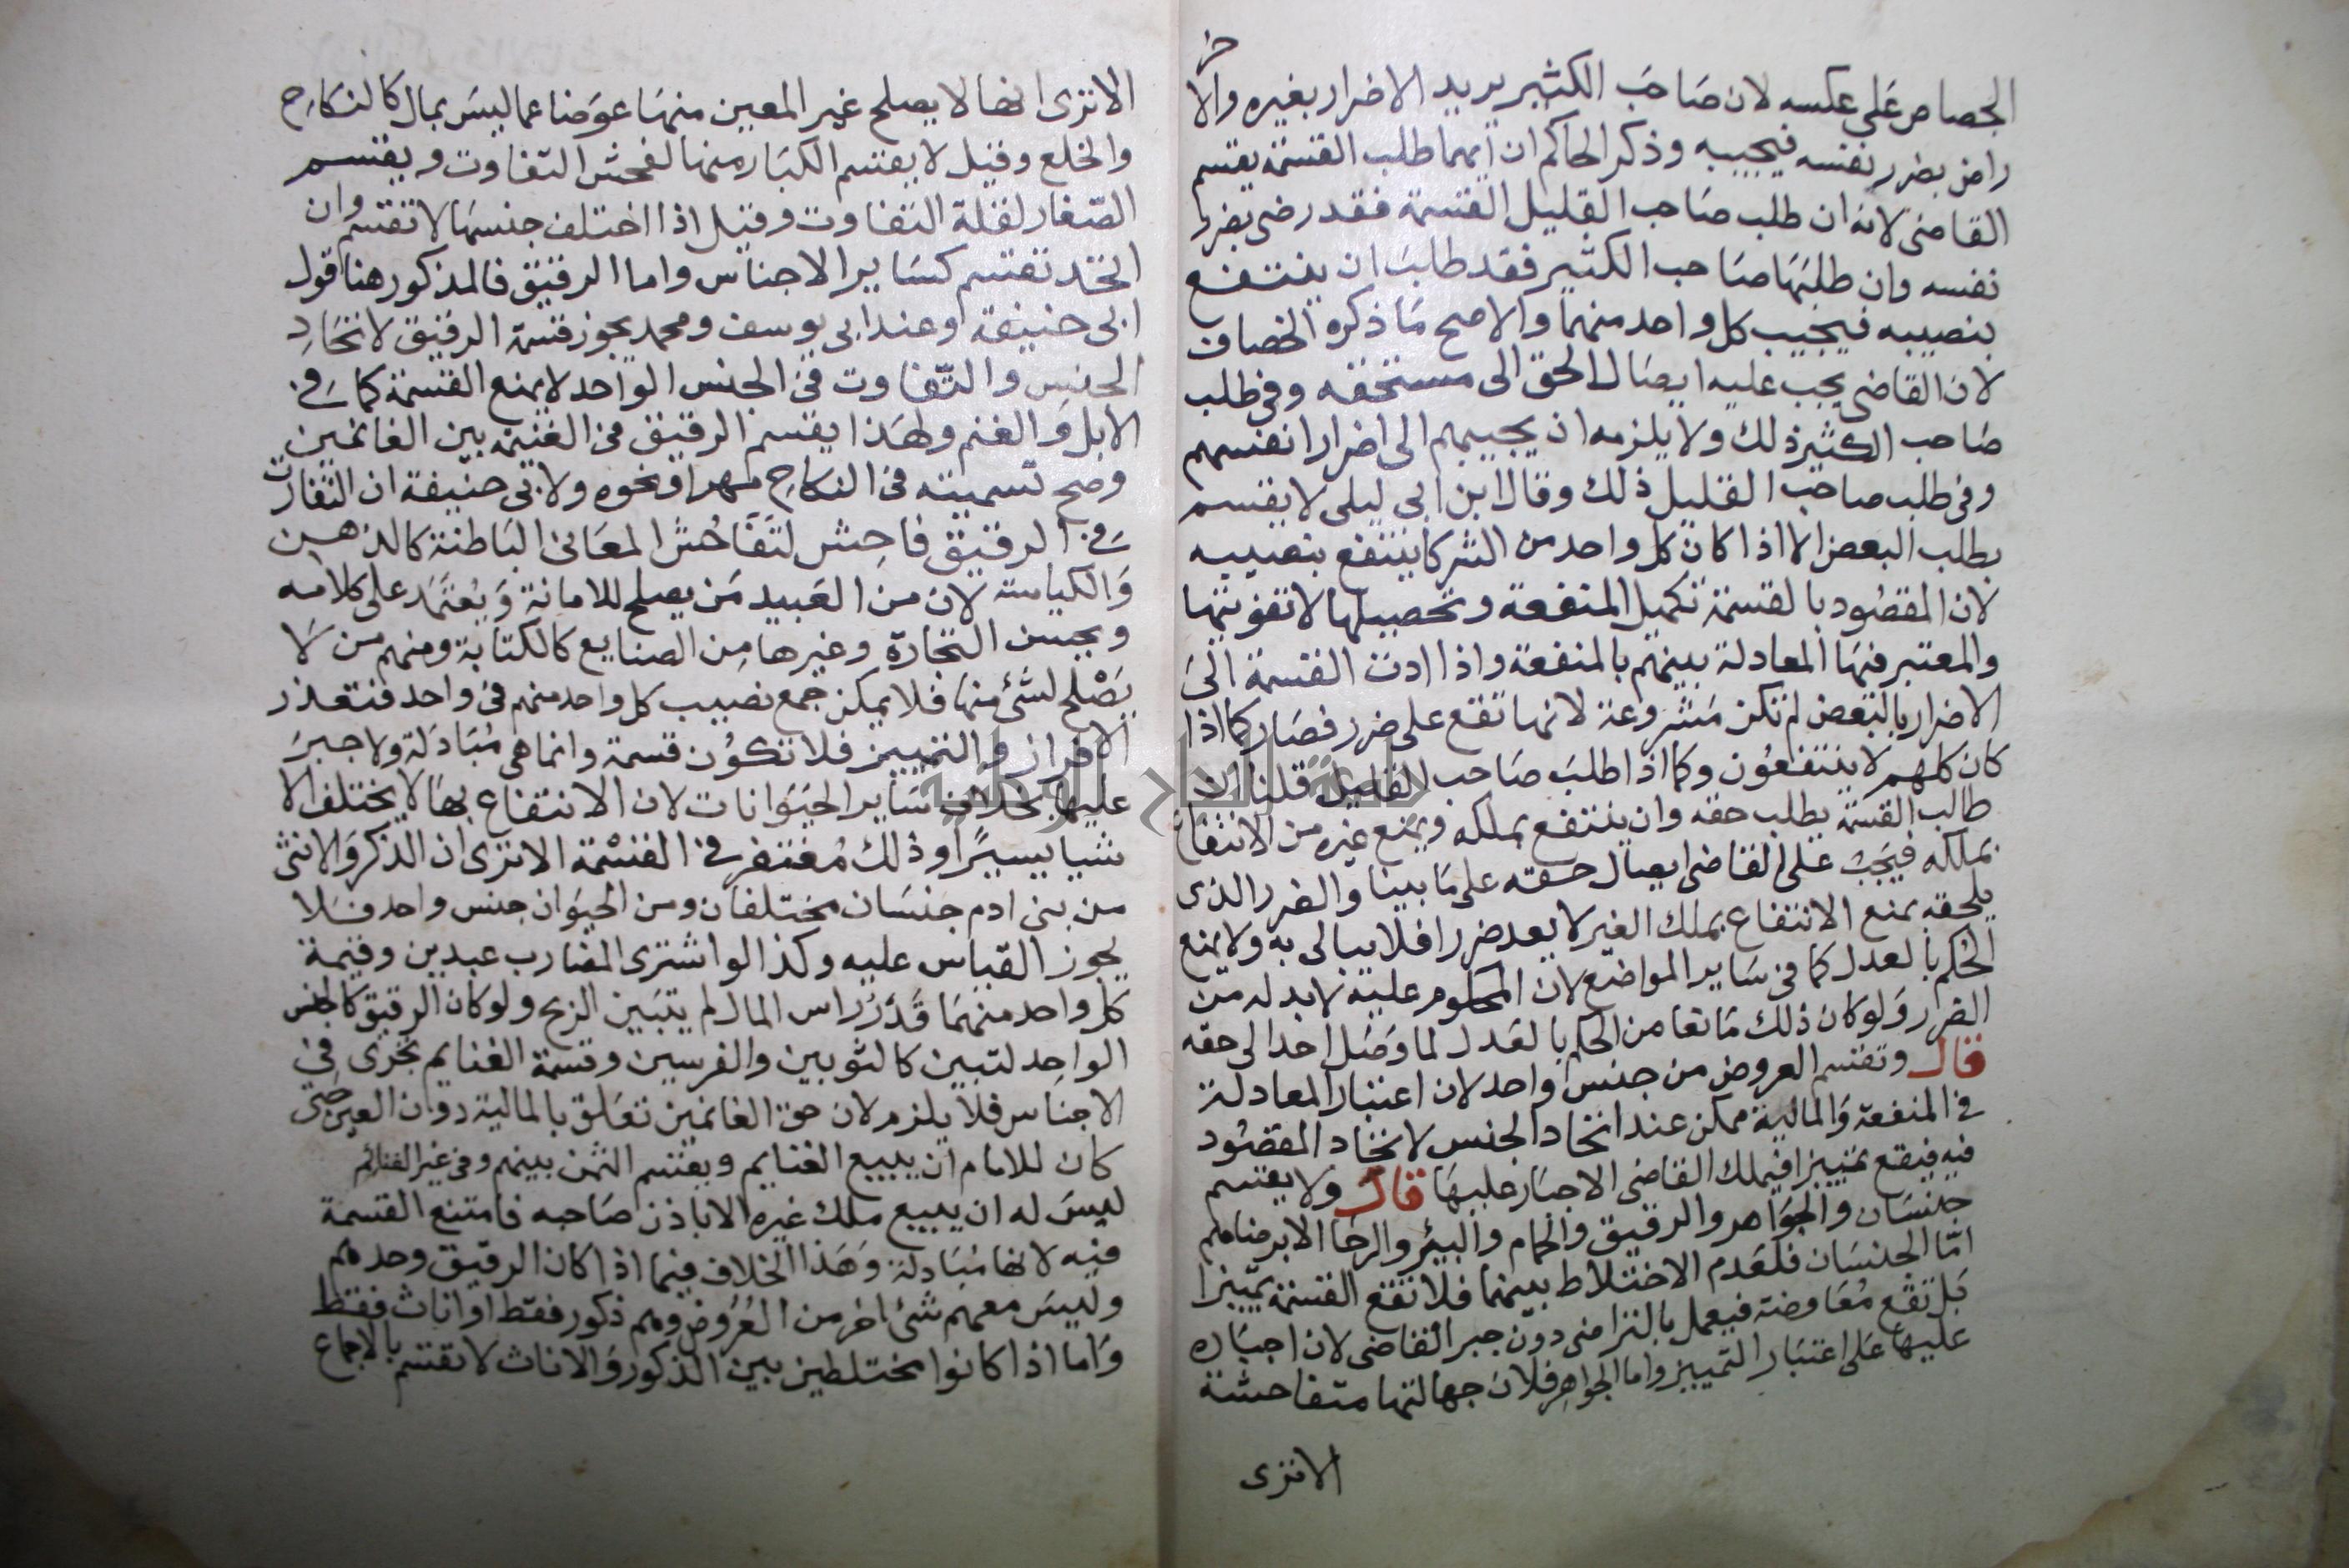 الجصاص على عكسه لان صاحب الكثير يريد الاضرار بغيره والاخر
راض بضرر نفسه فيجيبه وذكر الحاكم ان ايهما طلب القسمة يقسم
القاضى لانه ان طلب صاحب القليل القسمة فقد رضى بضرر
نفسه وان طلبها صاحب الكثير فقد طالب ان ينتفع
بنصيبه فيجيب كل واحد منهما والاصح ما ذكره الخصاف
لان القاضى يجب عليه ايصال الحق الى مستحقه وفى طلب
صاحب الكثير ذلك ولا يلزمه ان يجيبهم الى اضرار انفسهم
وفى طلب صاحب القليل ذلك وقال ابن ابى ليلى لا يقسم
بطلب البعض الا اذا كان كل واحد من الشركا ينتفع بنصيبه
لان المقصود بالقسمة تكميل المنفعة وتحصيلها لا تفويتها
والمعتبر فيها المعادلة بينهم بالمنفعة واذا ادت القسمة الى
الاضرار بالبعض لم تكن مشروعة لانها تقع على ضرر فصار كما اذا
كان كلهم لا ينتفعون وكما اذا طلب صاحب القليل قلنا ان
طالب القسمة يطلب حقه وان ينتفع بملكه ويمنع غيره من الانتفاع
بملكه فيجب على القاضى ايصال حقه على ما بينا والضرر الذى
يلحقه بمنع الانتفاع بملك الغير لا يعد ضررا فلا يبالى به ولا يمنع
الحكم بالعدل كما فى ساير المواضع لان المحكوم عليه لا بد له من
الضرر ولو كان ذلك مانعا من الحكم بالعدل لما وصل احد الى حقه
قال وتقسم العروض من جنس واحد لان اعتبار المعادلة
فى المنفعة والمالية ممكن عند اتحاد الجنس لاتحاد المقصود
فيه فيقع تمييزا فيملك القاضى الاجبار عليها قال ولا يقسم
جنسان والجواهر والرقيق والحمام والبير والرحا الا برضاهم
اما الجنسان فلعدم الاختلاط بينهما فلا تقع القسمة تمييزا
بل تقع معاوضة فيعمل بالتراضى دون جبر القاضى لان اجباره
عليها على اعتبار التمييز واما الجواهر فلان جهالتها متفاحشة
الا ترى
الا ترى انها لا يصلح غير المعين منها عوضا عما ليس بمال كالنكاح
والخلع وقيل لا يقسم الكبار منها لفحش التفاوت ويقسم
الصغار لقلة التفاوت وقيل اذا اختلف جنسها لا تقسم وان
اتحد تقسم كساير الاجناس واما الرقيق فالمذكور هنا قول
ابى حنيفة وعند ابى يوسف ومحمد يجوز قسمة الرقيق لاتحاد
الجنس والتفاوت فى الجنس الواحد لا يمنع القسمة كما فى
الابل والغنم ولهذا يقسم الرقيق فى الغنيمة بين الغانمين
وصح تسميته فى النكاح مهرا ونحوه ولابى حنيفة ان التفاوت
فى الرقيق فاحش لتفاحش المعانى الباطنة كالذهن
والكياسة لان من العبيد من يصلح للامانة ويعتمد على كلامه
ويحسن التجارة وغيرها من الصنايع كالكتابة ومنهم من لا
يصلح لشئ منها فلا يمكن جمع نصيب كل واحد منهم فى واحد فتعذر
الافراز والتمييز فلا تكون قسمة وانما هى مبادلة ولا جبر
عليها بخلاف ساير الحيوانات لان الانتفاع بها لا يختلف الا
شيا يسيرا وذلك مغتفر فى القسمة الا ترى ان الذكر والانثى
من بنى ادم جنسان مختلفان ومن الحيوان جنس واحد فلا
يجوز القياس عليه وكذا لو اشترى المضارب عبدين وقيمة
كل واحد منهما قدر راس المال لم يتبين الربح ولو كان الرقيق كالجنس
الواحد لتبين كالثوبين والفرسين وقسمة الغنايم تجرى فى
الاجناس فلا يلزم لان حق الغانمين تعلق بالمالية دون العين حتى
كان للامام ان يبيع الغنايم ويقسم الثمن بينهم وفى غير الغنائم
ليس له ان يبيع ملك غيره الا باذن صاحبه فامتنع القسمة
فيه لانها مبادلة وهذا الخلاف فيما اذا كان الرقيق وحدهم
وليس معهم شئ اخر من العروض وهم ذكور فقط او اناث فقط
واما اذا كانوا مختلطين بين الذكور والاناث لا تقسم بالاجماع